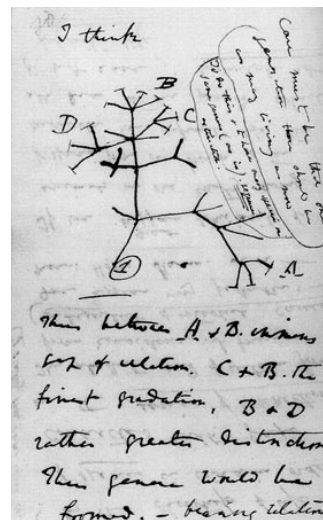 I think
B
C
D
A
1
Case must be that one
generation then should be
as many living as now
To do this & to have many species in
same genus (as is), requires
extinction.
Thus between A & B. immens
gap of relation. C & B. the
finest gradation, B & D
rather greater distinction
Thus genera would be
formed. — bearing relation